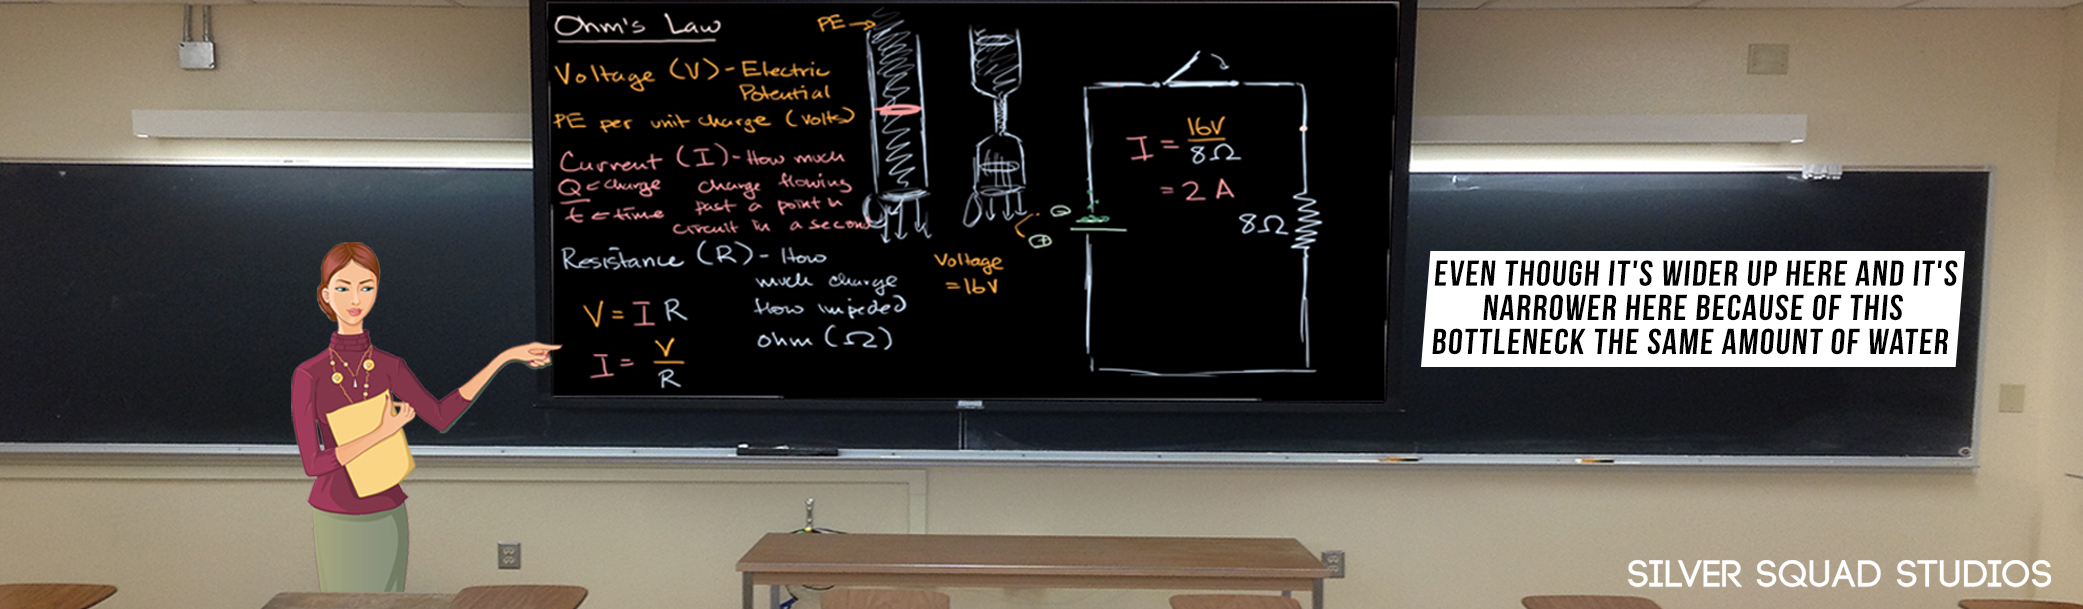 Ohm's Law
PE
Voltage (V) - Electric
Potential
PE per unit charge (volts)
Current (I) - How much
Q ← charge charge flowing
t ← time past a point in
circuit in a second
Resistance (R) - How
much charge
flow impeded
ohm (Ω)
V = I R
I = V
R
Voltage
= 16V
-
+
I = 16V
8Ω
= 2 A
8Ω
EVEN THOUGH IT'S WIDER UP HERE AND IT'S
NARROWER HERE BECAUSE OF THIS
BOTTLENECK THE SAME AMOUNT OF WATER
SILVER SQUAD STUDIOS